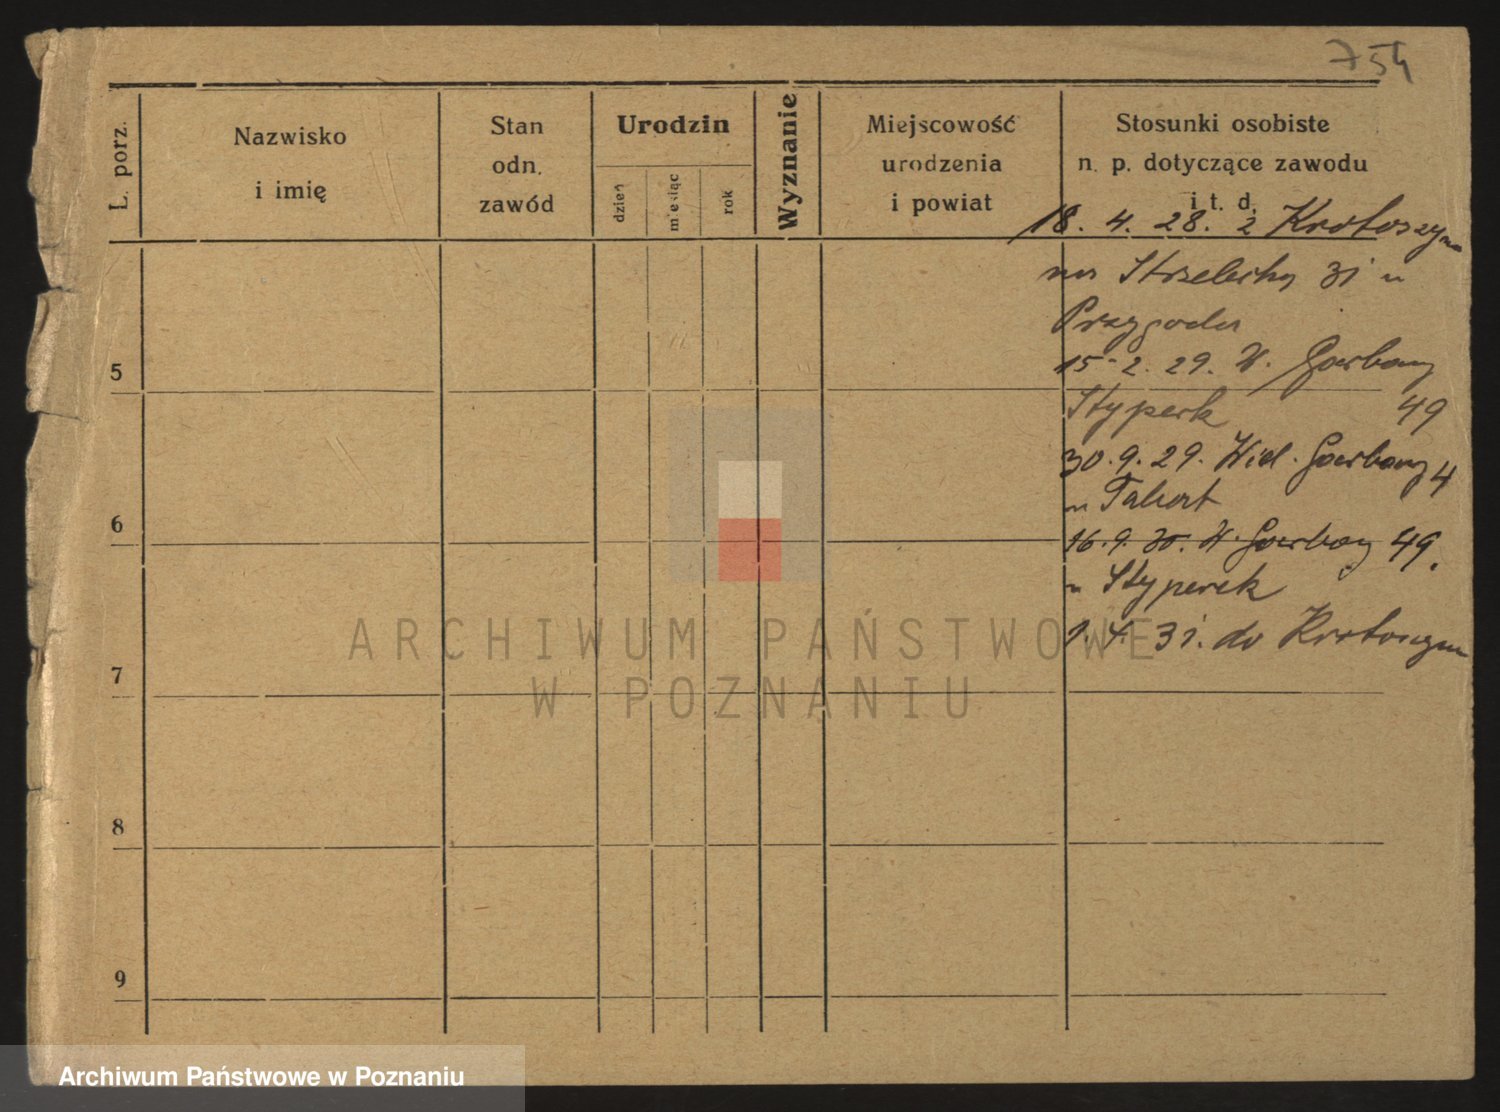 754
L. porz.
Nazwisko
i imię
Stan
odn.
zawód
Urodzin
dzień
miesiąc
rok
Wyznanie
Miejscowość
urodzenia
i powiat
Stosunki osobiste
n. p. dotyczące zawodu
i t. d.
18. 4. 28. z Krotoszyna
na Strzelecką 31 u
Przygoda
15. 2. 29. W. Garbary
Styperk 49
30. 9. 29. Wiel. Garbary 4
u Tabert
16. 9. 30. W. Garbary 49.
u Styperek
1. 4. 31. do Krotoszyna
5
6
7
8
9
ARCHIWUM PAŃSTWOWE
W POZNANIU
Archiwum Państwowe w Poznaniu